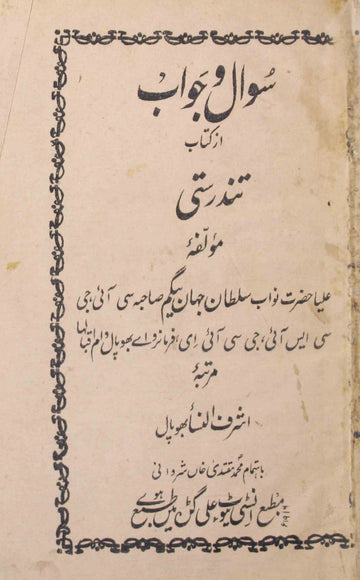 سوال و جواب
از کتاب
تندرستی
مؤلفۂ
علیا حضرت نواب سلطان جہان بیگم صاحبہ سی آئی جی
سی ایس آئی، جی سی آئی ای، فرمانروائے بھوپال دام اقبالہا
مرتبۂ
اشرف النسا بھوپال
باہتمام محمد مقتدی خاں شروانی
مطبع انسٹی ٹیوٹ علی گڑھ میں طبع ہوئی